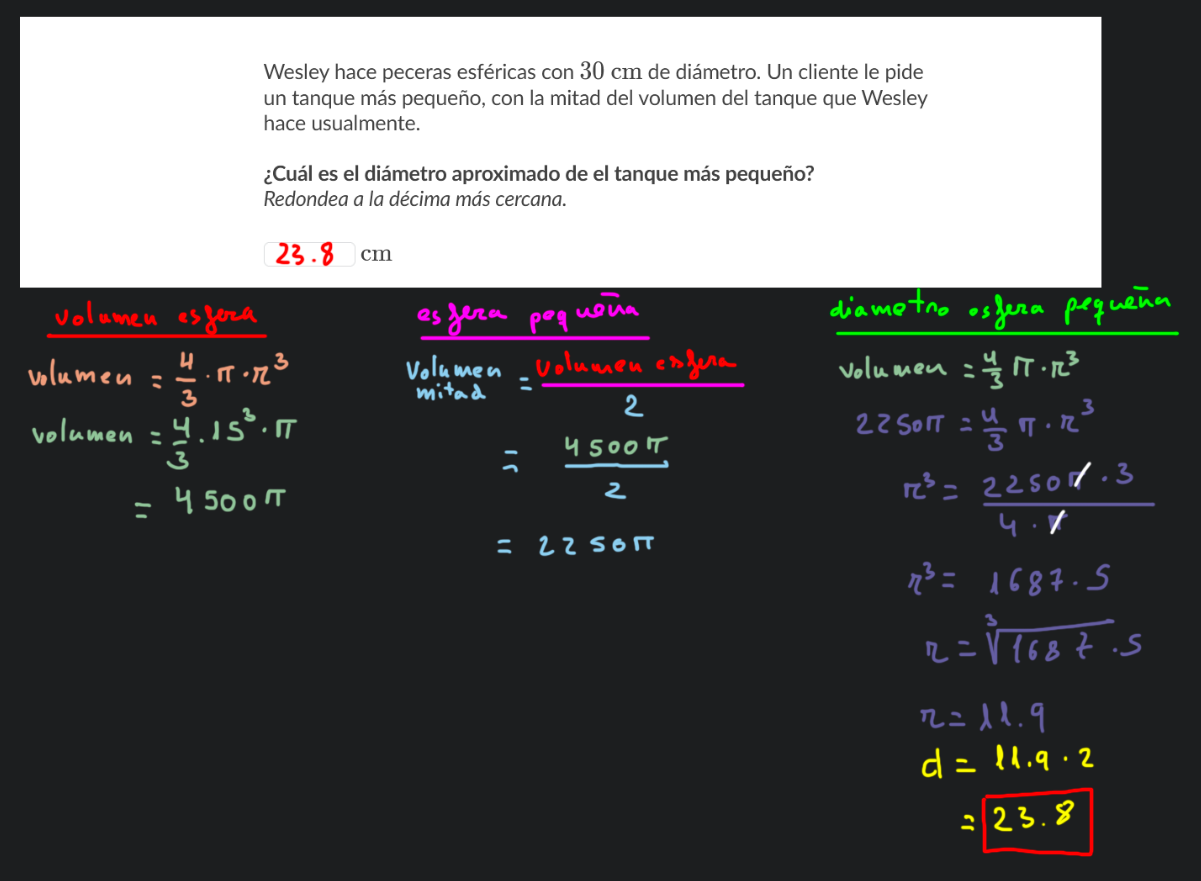 Wesley hace peceras esféricas con 30 cm de diámetro. Un cliente le pide
un tanque más pequeño, con la mitad del volumen del tanque que Wesley
hace usualmente.
¿Cuál es el diámetro aproximado de el tanque más pequeño?
Redondea a la décima más cercana.
23.8 cm
volumen esfera
volumen = 4/3 · π · r³
volumen = 4/3 . 15³ · π
= 4500π
esfera pequeña
Volumen mitad = volumen esfera / 2
= 4500π / 2
= 2250π
diametro esfera pequeña
volumen = 4/3 π · r³
2250π = 4/3 π · r³
r³ = 2250π · 3 / 4 · π
r³ = 1687.5
r = ³√1687.5
r = 11.9
d = 11.9 · 2
= 23.8